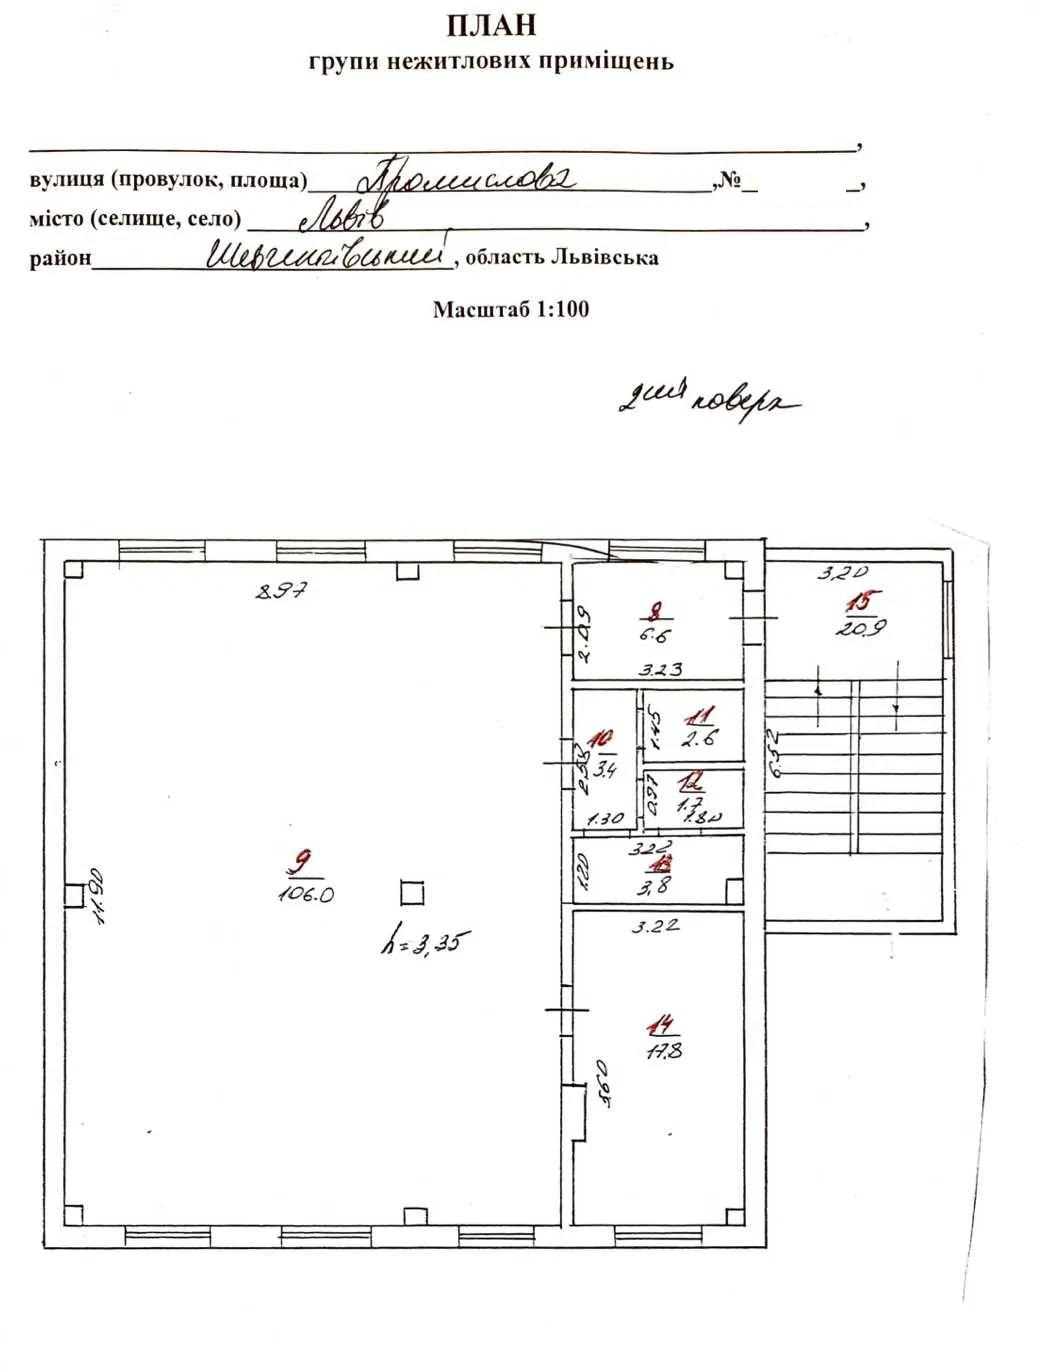 ПЛАН
групи нежитлових приміщень
,
вулиця (провулок, площа) Промислова ,№_ _,
місто (селище, село) Львів ,
район Шевченківський, область Львівська
Масштаб 1:100
2ий поверх
8.97
3.20
15
20.9
8
6.6
2.09
3.23
11
2.6
1.45
10
3.4
2.58
1.30
12
1.7
0.97
1.80
6.52
3.22
13
3,8
1.20
9
106.0
11.90
h=3,35
3.22
14
17.8
5.60